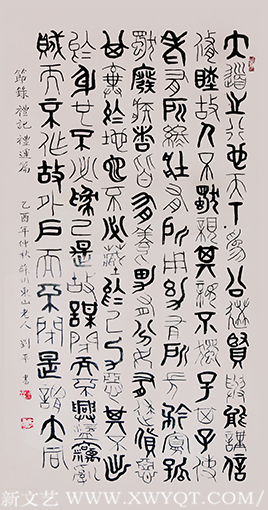 大道之行也天下為公選賢與能講信
修睦故人不獨親其親不獨子其子使
老有所終壯有所用幼有所長矜寡孤
獨廢疾者皆有所養男有分女有歸貨惡
其棄於地也不必藏於己力惡其不出
於身也不必為己是故謀閉而不興盜竊亂
賊而不作故外戶而不閉是謂大同
節錄禮記禮運篇
乙酉年仲秋東山老人劉書
新文艺 WWW.XWYQT.COM/